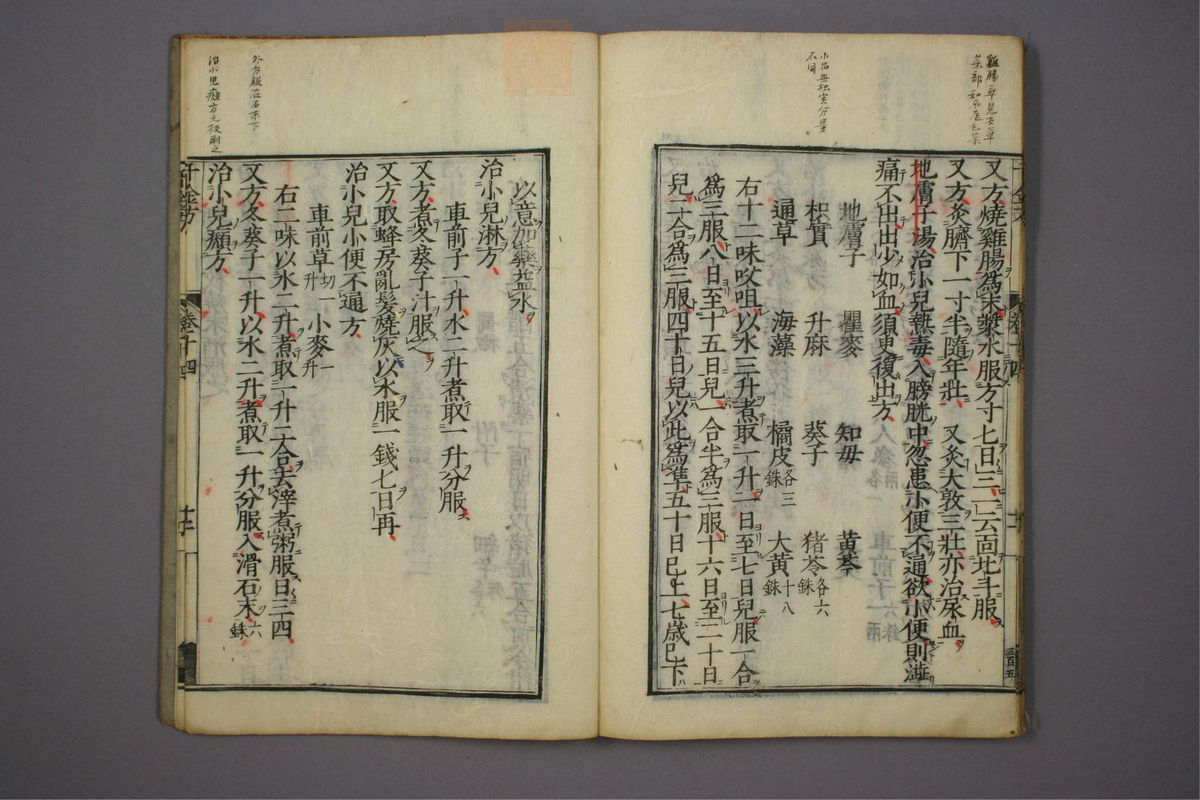 雞腸草見本草
菜部和名庭ヒ草
小品無枳実分量
不同
又方燒雞腸為末漿水服方寸匕日三一云面北斗服
又方灸臍下一寸半隨年壯 又灸大敦三壯亦治尿血
地膚子湯治小兒熱毒入膀胱中忽患小便不通欲小便則澁
痛不出出少如血須臾復出方
地膚子 瞿麥 知毋 黃芩
枳實 升麻 葵子 猪苓各六銖
通草 海藻 橘皮各三銖 大黃十八銖
右十二味㕮咀以水三升煮取一升一日至七日兒服一合
為三服八日至十五日兒一合半為三服十六日至二十日
兒二合為三服四十日兒以此為準五十日已上七歲已下
千金方 卷十四
外方服在石末下
治小兒㿗方元板剛之
以意加藥益水
治小兒淋方
車前子一升水二升煮取一升分服
又方煮冬葵子汁服之
又方取蜂房亂髮燒灰以水服一錢七日再
治小兒小便不通方
車前草切一升 小麥一升
右二味以水二升煮取一升二合去滓煮粥服日三四
又方冬葵子一升以水二升煮取一升分服入滑石末六銖
治小兒㿗方
千金方 卷十四 十二